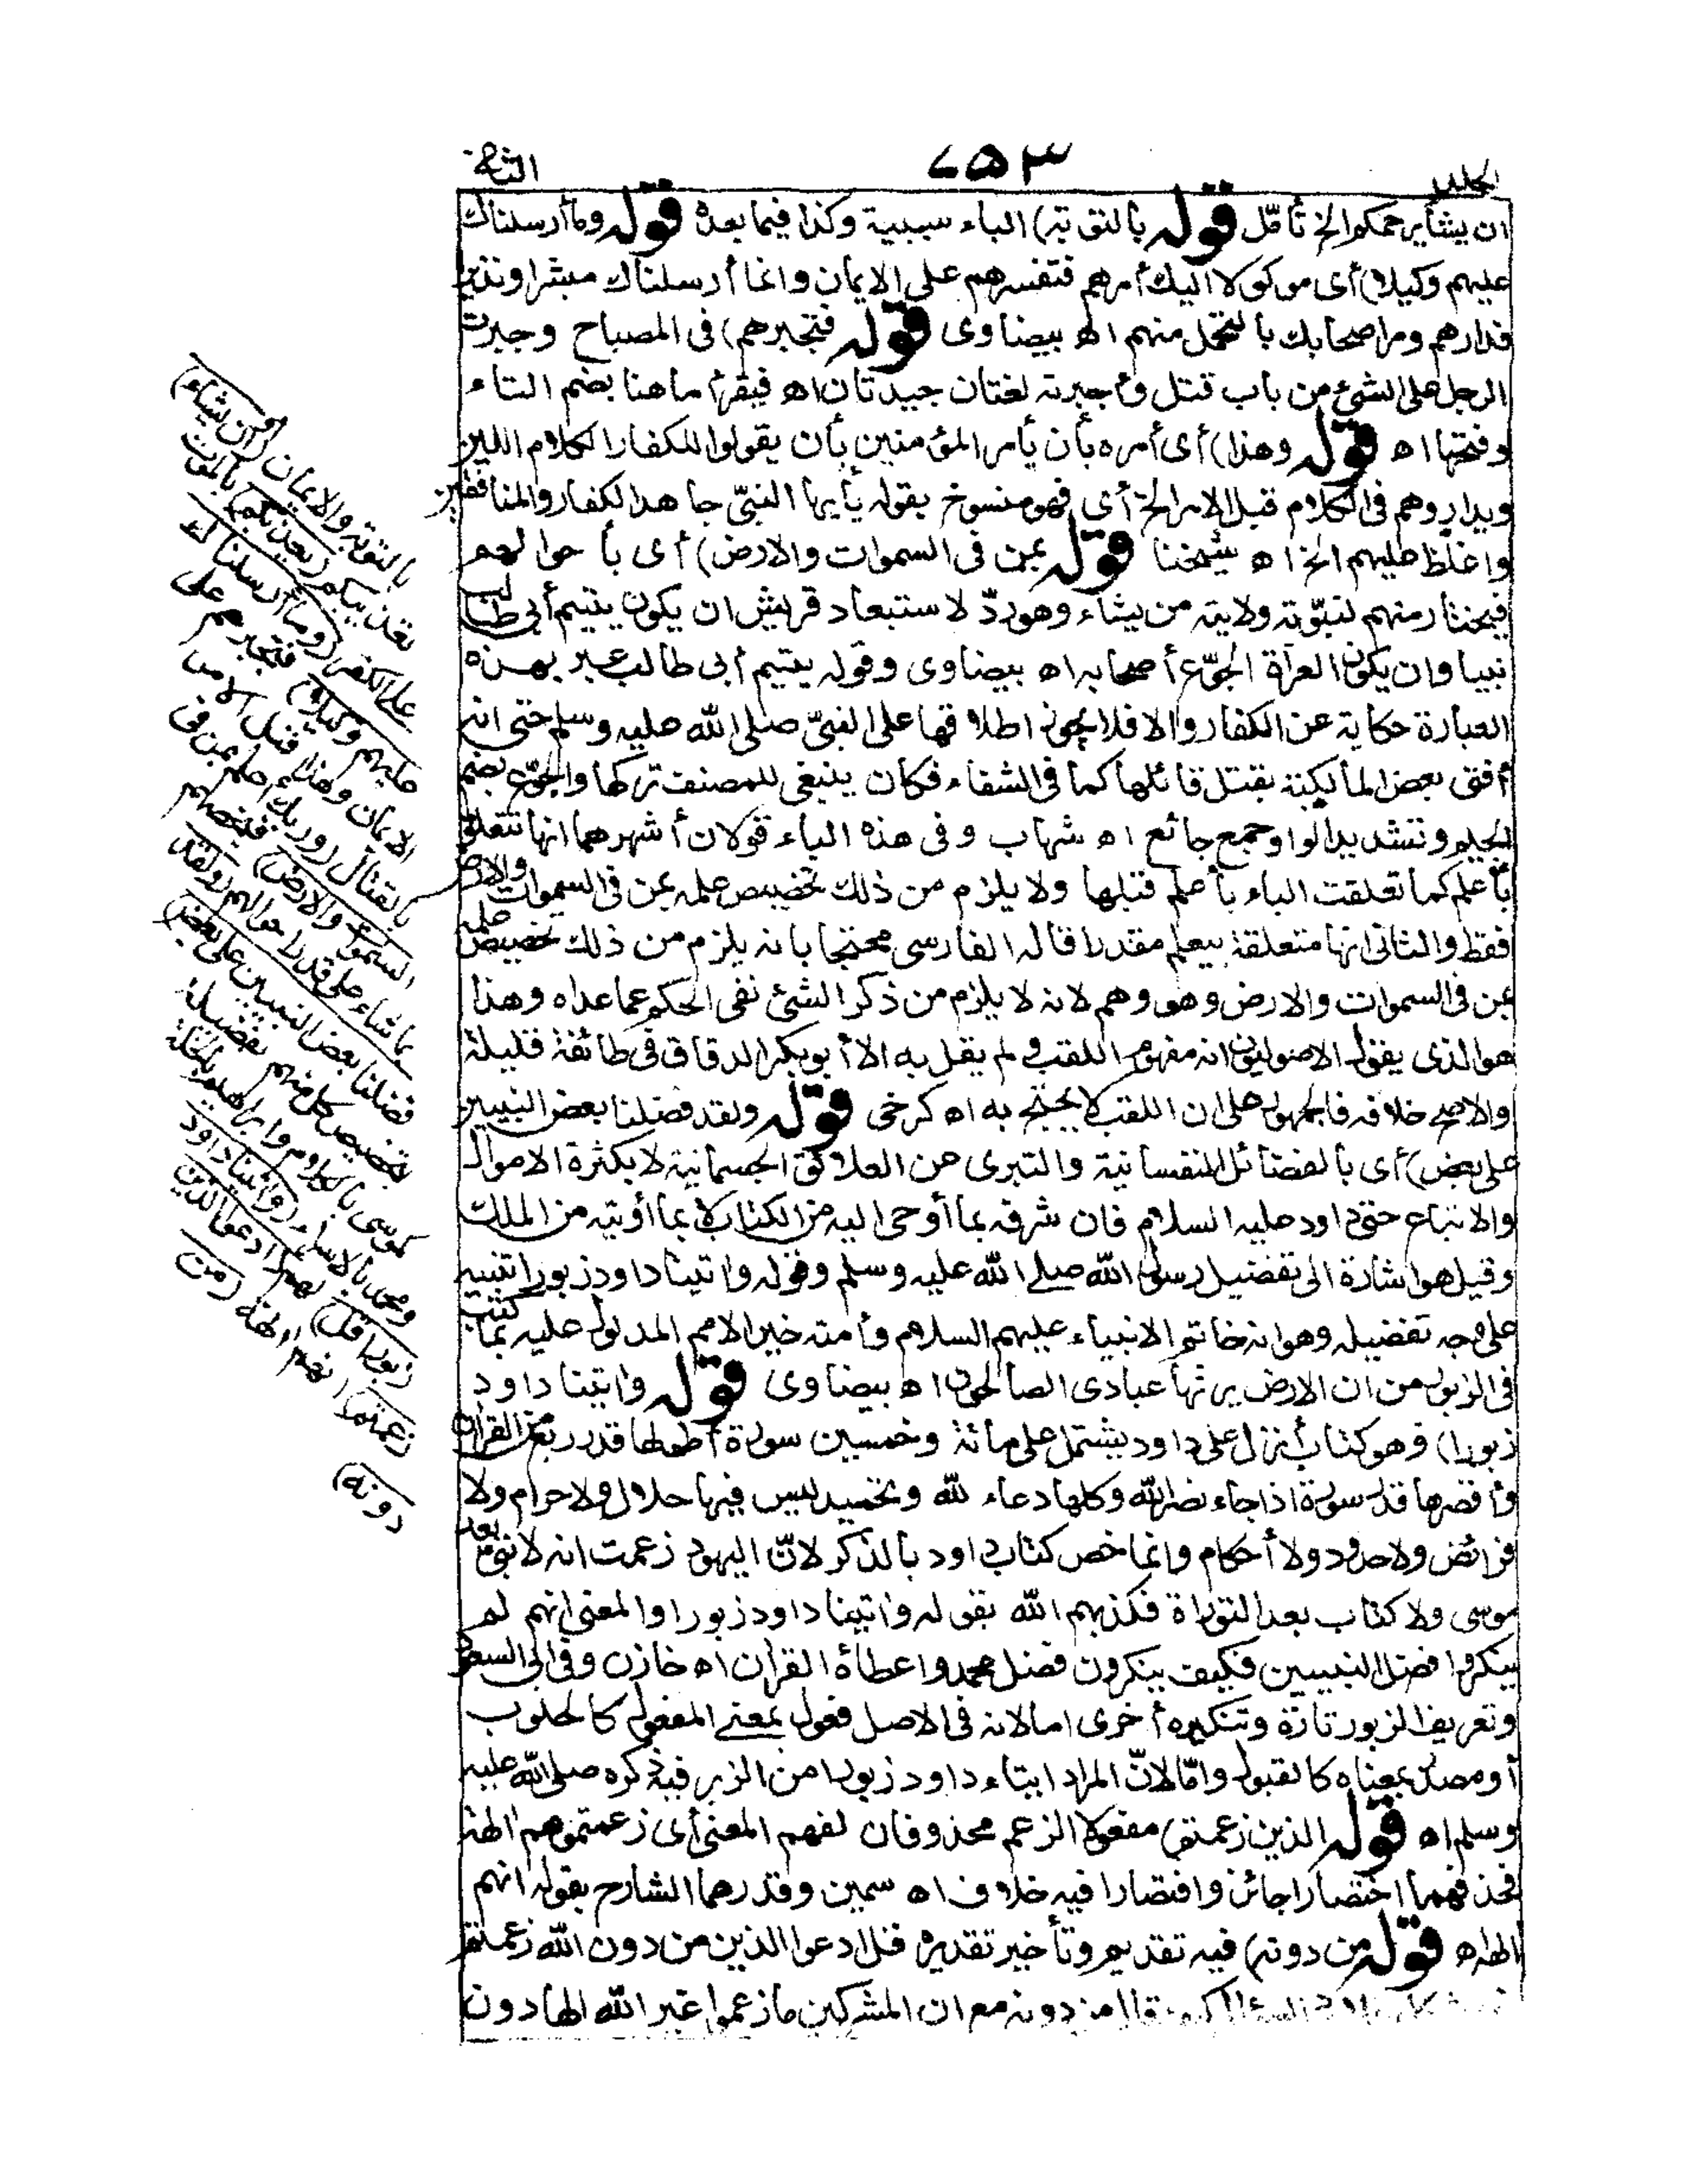 الجلد ٧٥٣ الثانى
ان يشأ يرحمكم الخ تأمّل قوله بالتوبة) الباء سببية وكذا فيما بعده قوله وما أرسلناك
عليهم وكيلا) أى موكولا اليك أمرهم فتقسرهم على الايمان وانما أرسلناك مبشرا ونذيرا
فدارهم ومر أصحابك بالتحمل منهم اه بيضاوى قوله فتجبرهم) فى المصباح وجبرت
الرجل على الشئ من باب قتل وأجبرته لغتان جيدتان اه فيقرأ ما هنا بضم التاء
وفتحها اه قوله وهذا) أى أمره بأن يأمر المؤمنين بأن يقولوا للكفار الكلام اللين
ويداروهم فى الكلام قبل الامر الخ أى فهو منسوخ بقوله يأيها النبىّ جاهد الكفار والمنافقين
واغلظ عليهم الخ اه شيخنا قوله بمن فى السموات والارض) أى بأحوالهم
فيختار منهم لنبوّته وولايته من يشاء وهو ردّ لاستبعاد قريش ان يكون يتيم أبى طالب
نبيا وان يكون العراة الجوّع أصحابه اه بيضاوى وقوله يتيم أبى طالب عبر بهذه
العبارة حكاية عن الكفار والا فلا يجوز اطلاقها على النبىّ صلى الله عليه وسلم حتى انه
أفتى بعض المالكية بقتل قائلها كما فى الشفاء فكان ينبغى للمصنف تركها والجوّع بضم
الجيم وتشديد الواو جمع جائع اه شهاب وفى هذه الباء قولان أشهرهما انها تتعلق
بأعلم كما تعلقت الباء بأعلم قبلها ولا يلزم من ذلك تخصيص علمه بمن فى السموات والارض
فقط والثانى انها متعلقة بيعلم مقدرا قاله الفارسى محتجا بانه يلزم من ذلك تخصيص علمه
بمن فى السموات والارض وهو وهم لانه لا يلزم من ذكر الشئ نفى الحكم عما عداه وهذا
هو الذى يقول الاصوليون انه مفهوم اللقب ولم يقل به الا أبو بكر الدقاق فى طائفة قليلة
والاصح خلافه فالجمهور على ان اللقب لا يحتج به اه كرخى قوله ولقد فضلنا بعض النبيين
على بعض) أى بالفضائل النفسانية والتبرى عن العلائق الجسمانية لا بكثرة الاموال
والاتباع حتى داود عليه السلام فان شرفه بما أوحى اليه من الكتاب لا بما أوتيه من الملك
وقيل هو اشارة الى تفضيل رسول الله صلى الله عليه وسلم وقوله واتينا داود زبورا تنبيه
على وجه تفضيله وهو انه خاتم الانبياء عليهم السلام وأمته خير الامم المدلول عليه بما كتب
فى الزبور من ان الارض يرثها عبادى الصالحون اه بيضاوى قوله واتينا داود
زبورا) وهو كتاب أنزل على داود يشتمل على مائة وخمسين سورة أطولها قدر ربع من القرآن
وأقصرها قدر سورة اذا جاء نصر الله وكلها دعاء لله وتحميد ليس فيها حلال ولا حرام ولا
فرائض ولا حدود ولا أحكام وانما خص كتاب داود بالذكر لانّ اليهود زعمت انه لا نبىّ بعد
موسى ولا كتاب بعد التوراة فكذبهم الله بقوله واتينا داود زبورا والمعنى انهم لم
ينكروا فضل النبيين فكيف ينكرون فضل محمد واعطاءه القرآن اه خازن وفى أبى السعود
وتعريف الزبور تارة وتنكيره أخرى اما لانه فى الاصل فعول بمعنى المفعول كالحلوب
أو مصدر بمعناه كالقبول وامّا لانّ المراد ايتاء داود زبورا من الزبر فيه ذكره صلى الله عليه
وسلم اه قوله الذين زعمتم) مفعولا الزعم محذوفان لفهم المعنى أى زعمتموهم الهة
فحذفهما اختصارا جائز واقتصارا فيه خلاف اه سمين وقدرهما الشارح بقوله انهم
الهة اه قوله من دونه) فيه تقديم وتأخير تقديره قل ادعوا الذين من دون الله زعمتم
من دونه مع ان المشركين ما زعموا غير الله الها دون
بالتوبة والايمان (أو ان يشأ)
تعذيبكم (يعذبكم) بالموت
على الكفر (وما أرسلناك
عليهم وكيلا) فتجبرهم على
الايمان وهذا قبل الامر
بالقتال (وربك أعلم بمن فى
السموات والارض) فيخصهم
بما شاء على قدر أحوالهم (ولقد
فضلنا بعض النبيين على بعض)
بتخصيص كل منهم بفضيلة
كموسى بالكلام وابراهيم بالخلة
ومحمد بالاسراء (واتينا داود
زبورا قل) لهم (ادعوا الذين
زعمتم) انهم الهة (من
دونه)